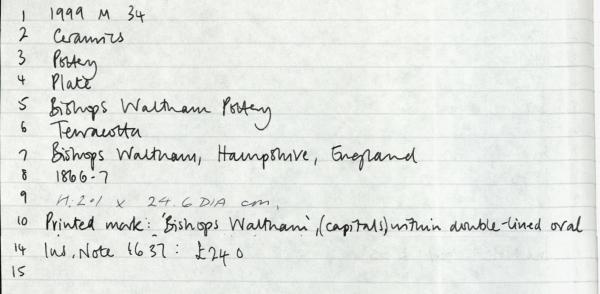 1 1999 M 34
2 Ceramics
3 Pottery
4 Plate
5 Bishops Waltham Pottery
6 Terracotta
7 Bishops Waltham, Hampshire, England
8 1866-7
9 H:2.1 x 24.6 DIA cm.
10 Printed mark: 'Bishops Waltham', (capitals) within double-lined oval
14 Ins. Note 1637: £240
15